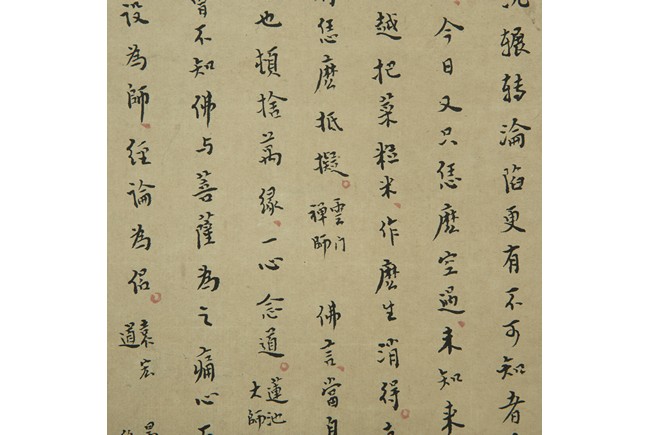 况辗转淪陷更有不可知者
今日又只恁麽空過未知来
越把菜粒米作麽生消得
恁麽抵擬雲门禅師佛言當自
也頓捨萬緣一心念道蓮池大師
曾不知佛与菩薩為之痛心
設為師經論為侶袁宏道